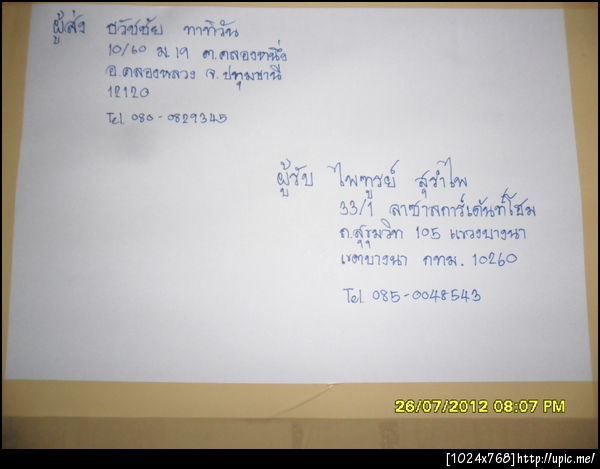 ผู้ส่ง ธวัชชัย ทาทิวัน
10/60 ม.19 ต.คลองหนึ่ง
อ.คลองหลวง จ.ปทุมธานี
12120
Tel. 080-0829345
ผู้รับ ไพฑูรย์ สุรำไพ
33/1 ลาซาลการ์เด้นท์โฮม
ถ.สุขุมวิท 105 แขวงบางนา
เขตบางนา กทม. 10260
Tel. 085-0048543
26/07/2012 08:07 PM
[1024x768]http://upic.me/